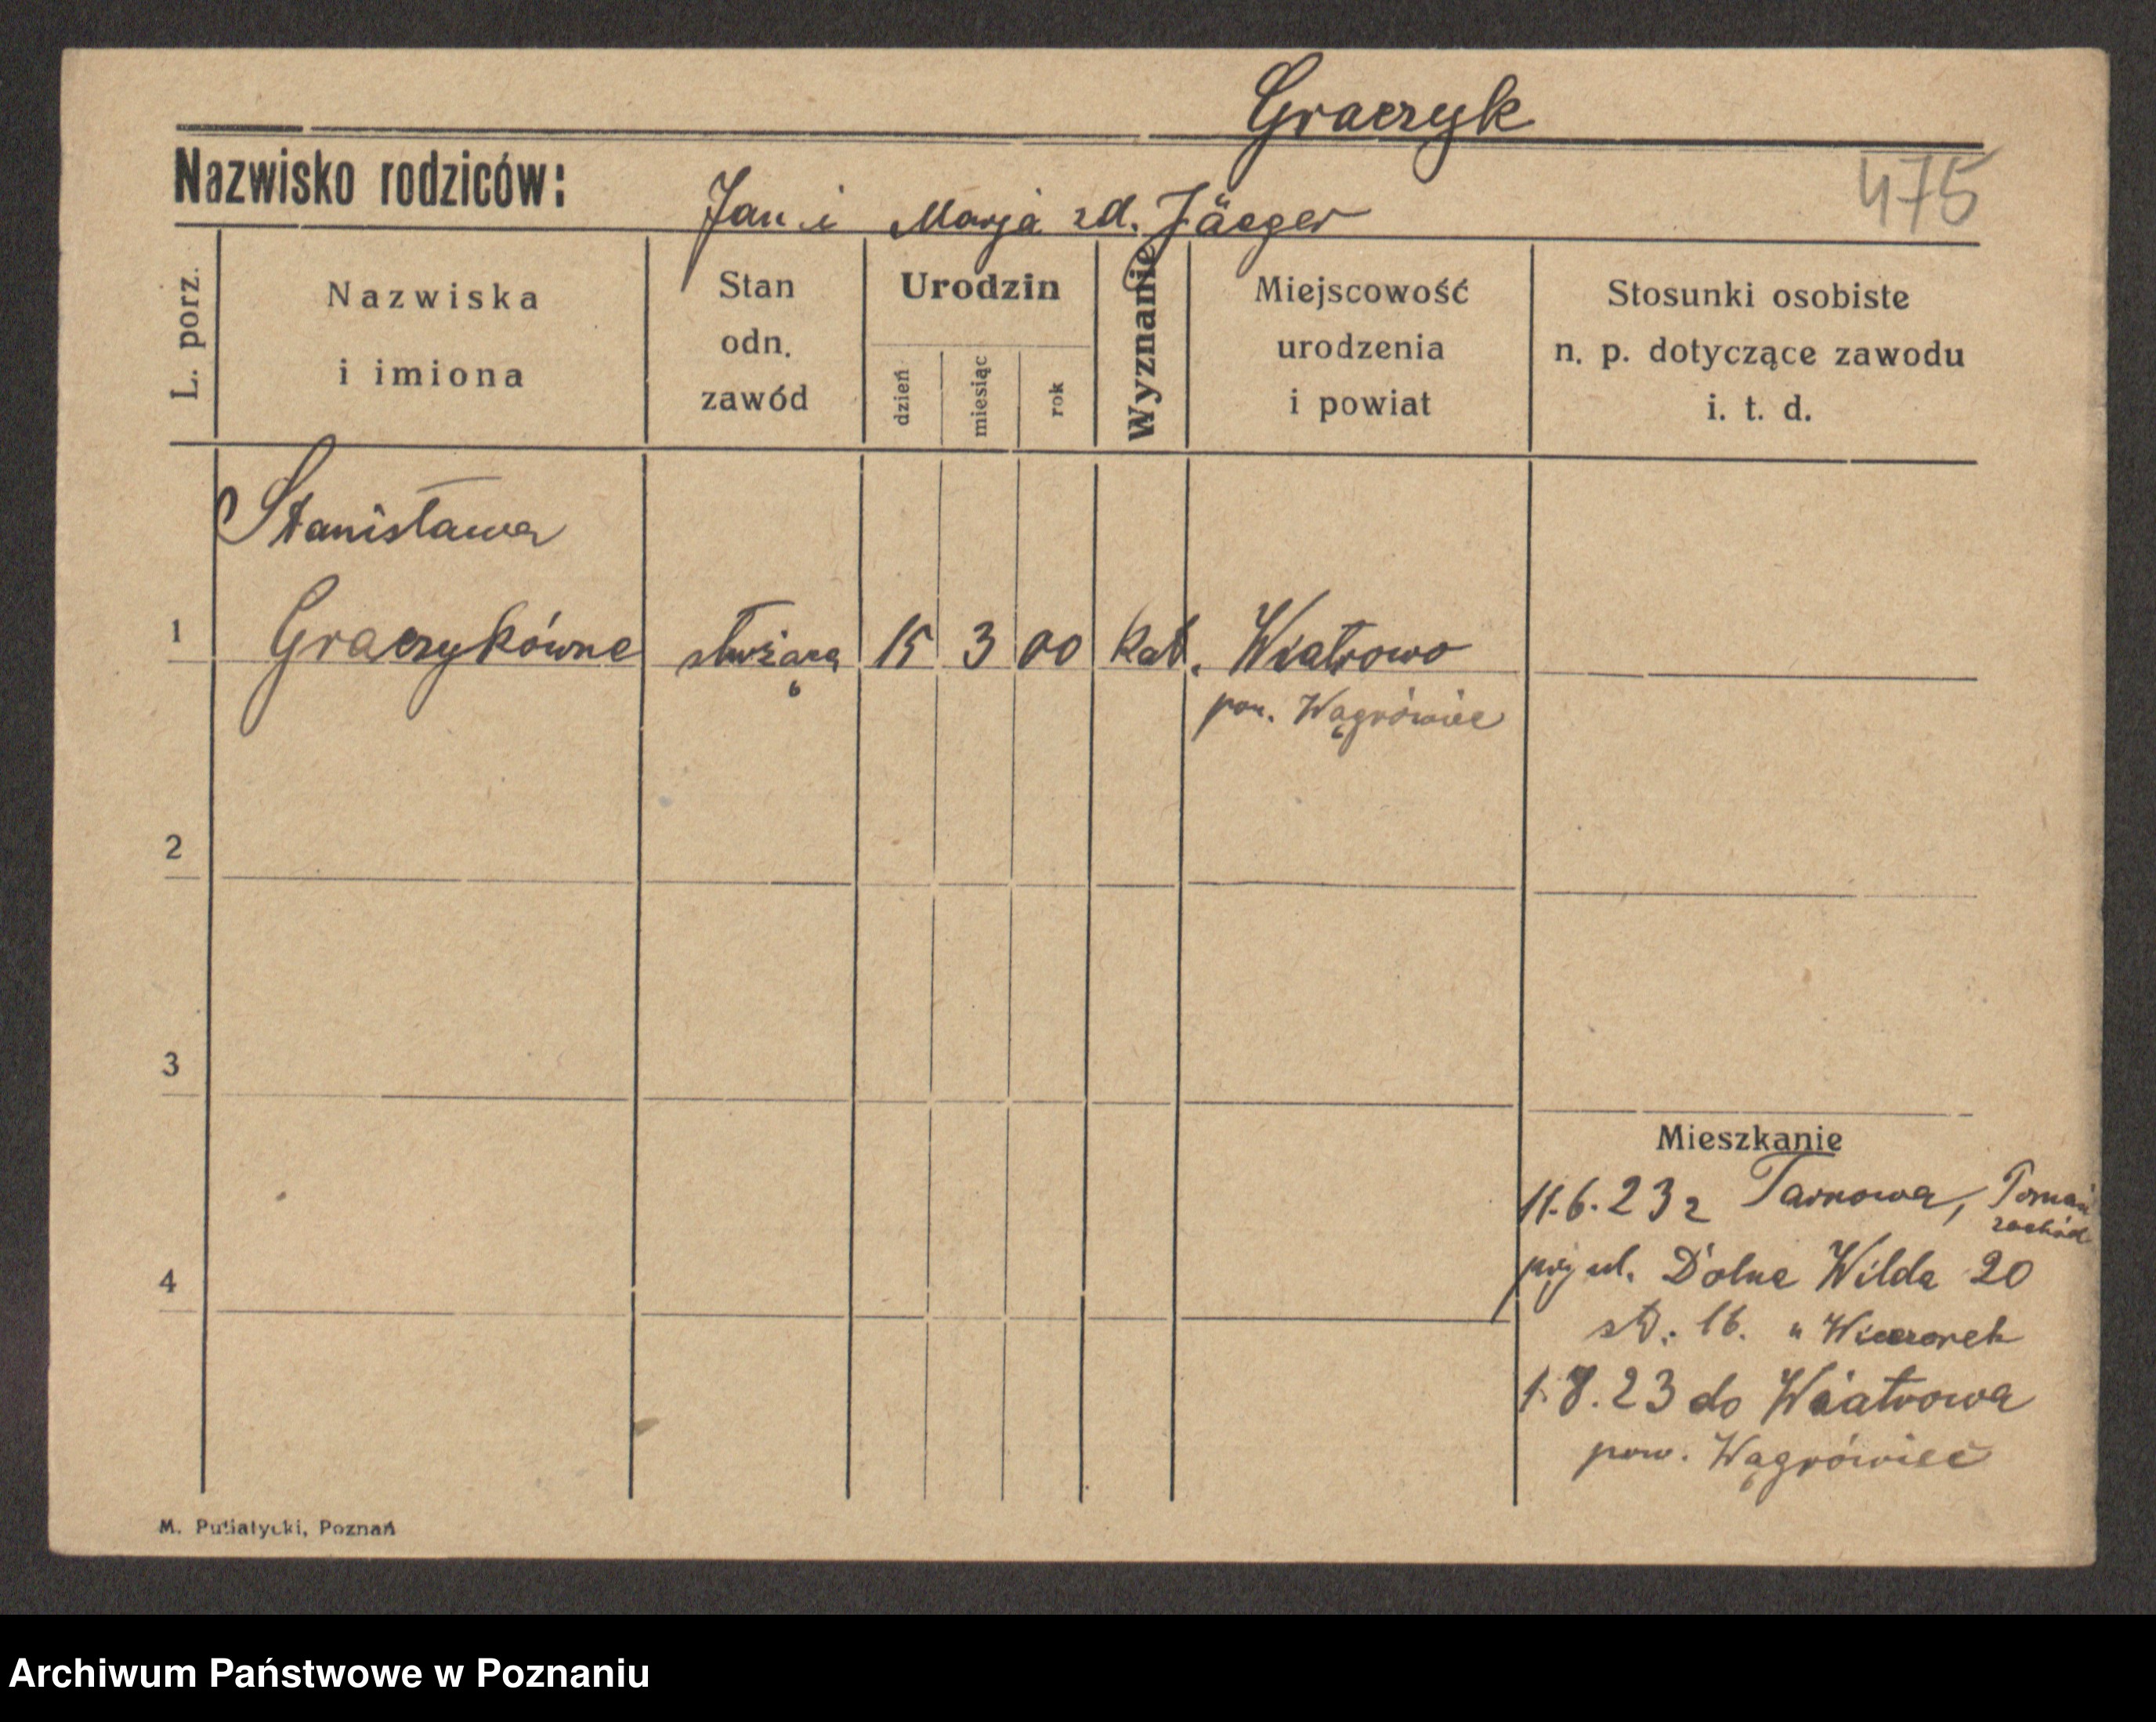 Graczyk
Nazwisko rodziców:
Jan i Marja zd. Jäeger
475
L. porz.
Nazwiska
i imiona
Stan
odn.
zawód
Urodzin
dzień
miesiąc
rok
Wyznanie
Miejscowość
urodzenia
i powiat
Stosunki osobiste
n. p. dotyczące zawodu
i. t. d.
Stanisława
1 Graczykówna służąca 15 3 00 kat. Wiatrowo
pow. Wągrówiec
2
3
Mieszkanie
11.6.23 z Tarnowa, Poznań
zachód
4
ul. Dolna Wilda 20
16. u Wieczorek
1.8.23 do Wiatrowa
pow. Wągrówiec
M. Putiatycki, Poznań
Archiwum Państwowe w Poznaniu